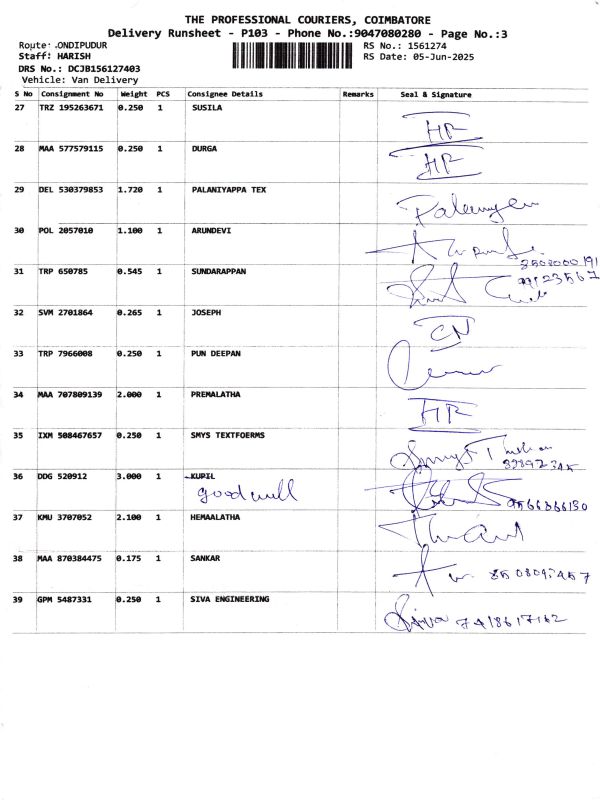 THE PROFESSIONAL COURIERS, COIMBATORE
Delivery Runsheet - P103 - Phone No.:9047080280 - Page No.:3
Route: .ONDIPUDUR
RS No.: 1561274
Staff: HARISH
RS Date: 05-Jun-2025
DRS No.: DCJB156127403
Vehicle: Van Delivery
S No Consignment No Weight PCS Consignee Details Remarks Seal & Signature
27 TRZ 195263671 0.250 1 SUSILA HR
28 MAA 577579115 0.250 1 DURGA HR
29 DEL 530379853 1.720 1 PALANIYAPPA TEX
30 POL 2057010 1.100 1 ARUNDEVI
31 TRP 650785 0.545 1 SUNDARAPPAN
32 SVM 2701864 0.265 1 JOSEPH CN
33 TRP 7966008 0.250 1 PUN DEEPAN
34 MAA 707809139 2.000 1 PREMALATHA HR
35 IXM 508467657 0.250 1 SMYS TEXTFOERMS
36 DDG 520912 3.000 1 KUPIL
goodwill
37 KMU 3707052 2.100 1 HEMAALATHA
38 MAA 870384475 0.175 1 SANKAR
39 GPM 5487331 0.250 1 SIVA ENGINEERING
Siva 7418617162